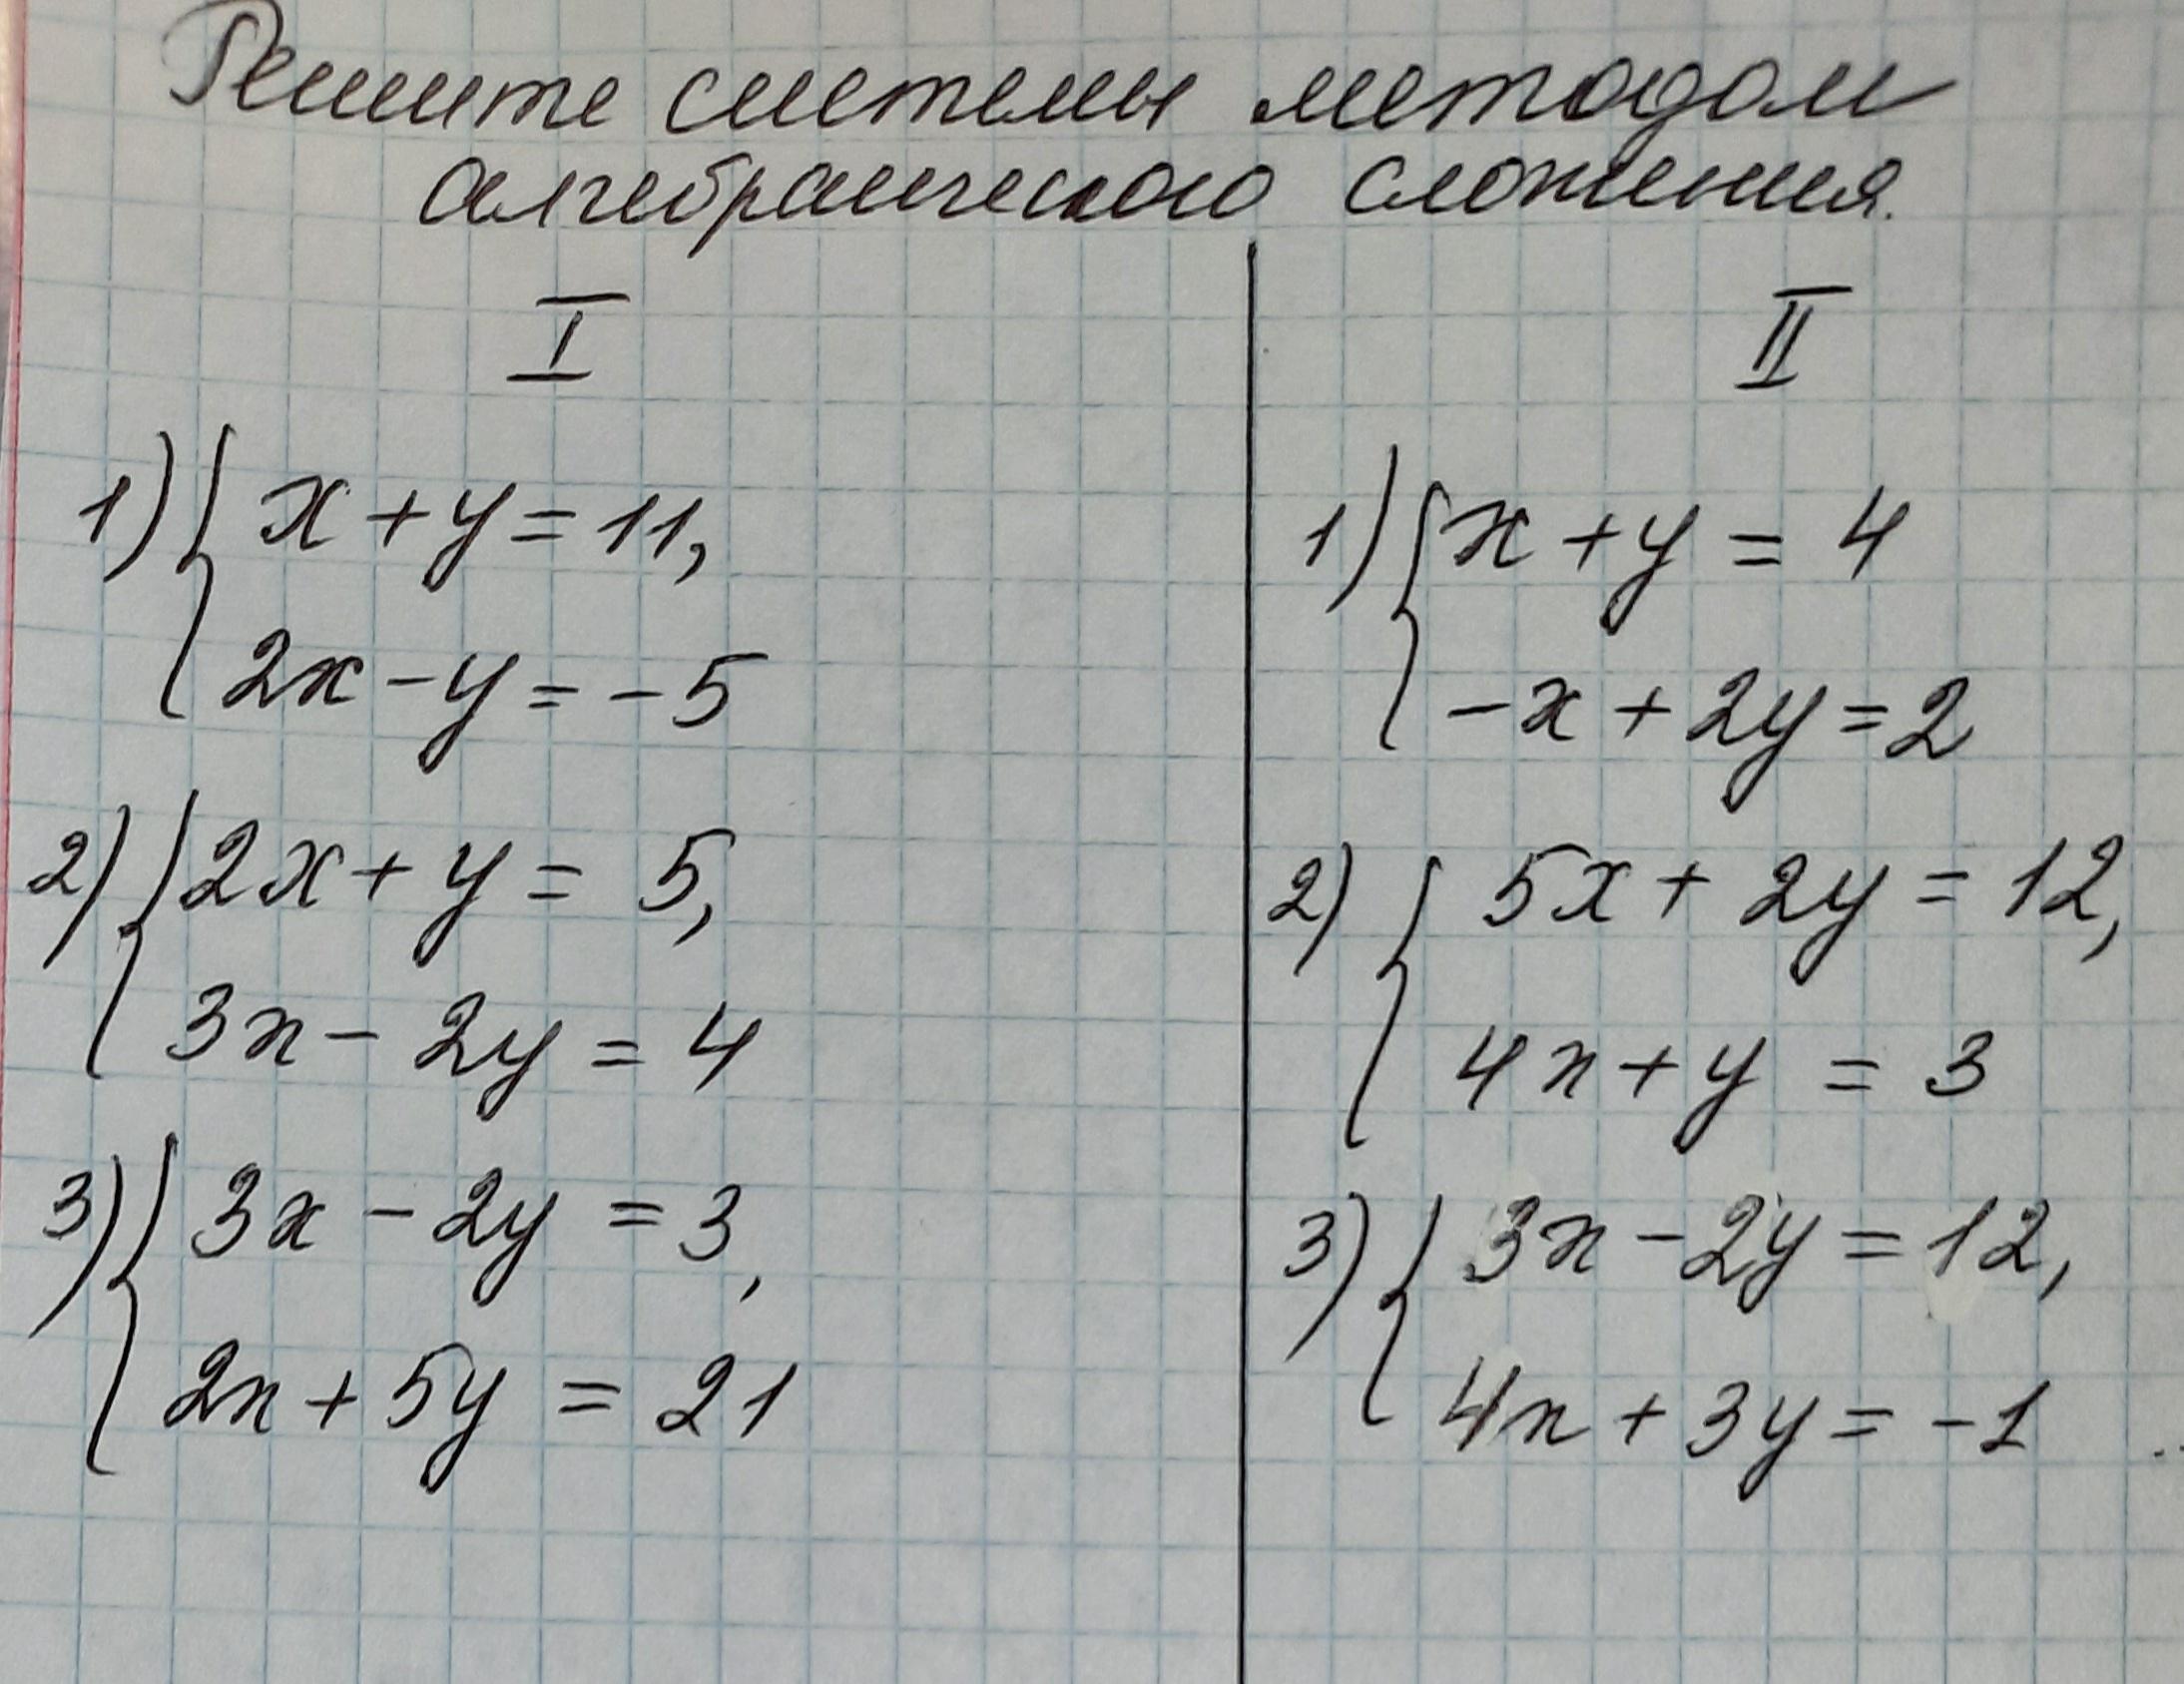 Решите системы методом
алгебраического сложения.
I
1) { x + y = 11,
2x - y = -5
2) { 2x + y = 5,
3x - 2y = 4
3) { 3x - 2y = 3,
2x + 5y = 21
II
1) { x + y = 4
-x + 2y = 2
2) { 5x + 2y = 12,
4x + y = 3
3) { 3x - 2y = 12,
4x + 3y = -1